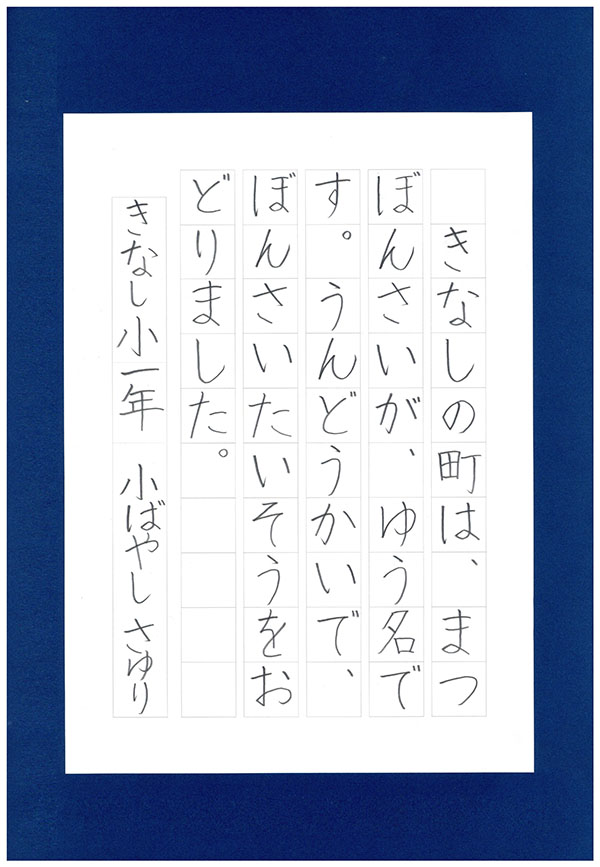 きなしの町は、まつ
ぼんさいが、ゆう名で
す。うんどうかいで、
ぼんさいたいそうをお
どりました。
きなし小一年　小ばやし さゆり